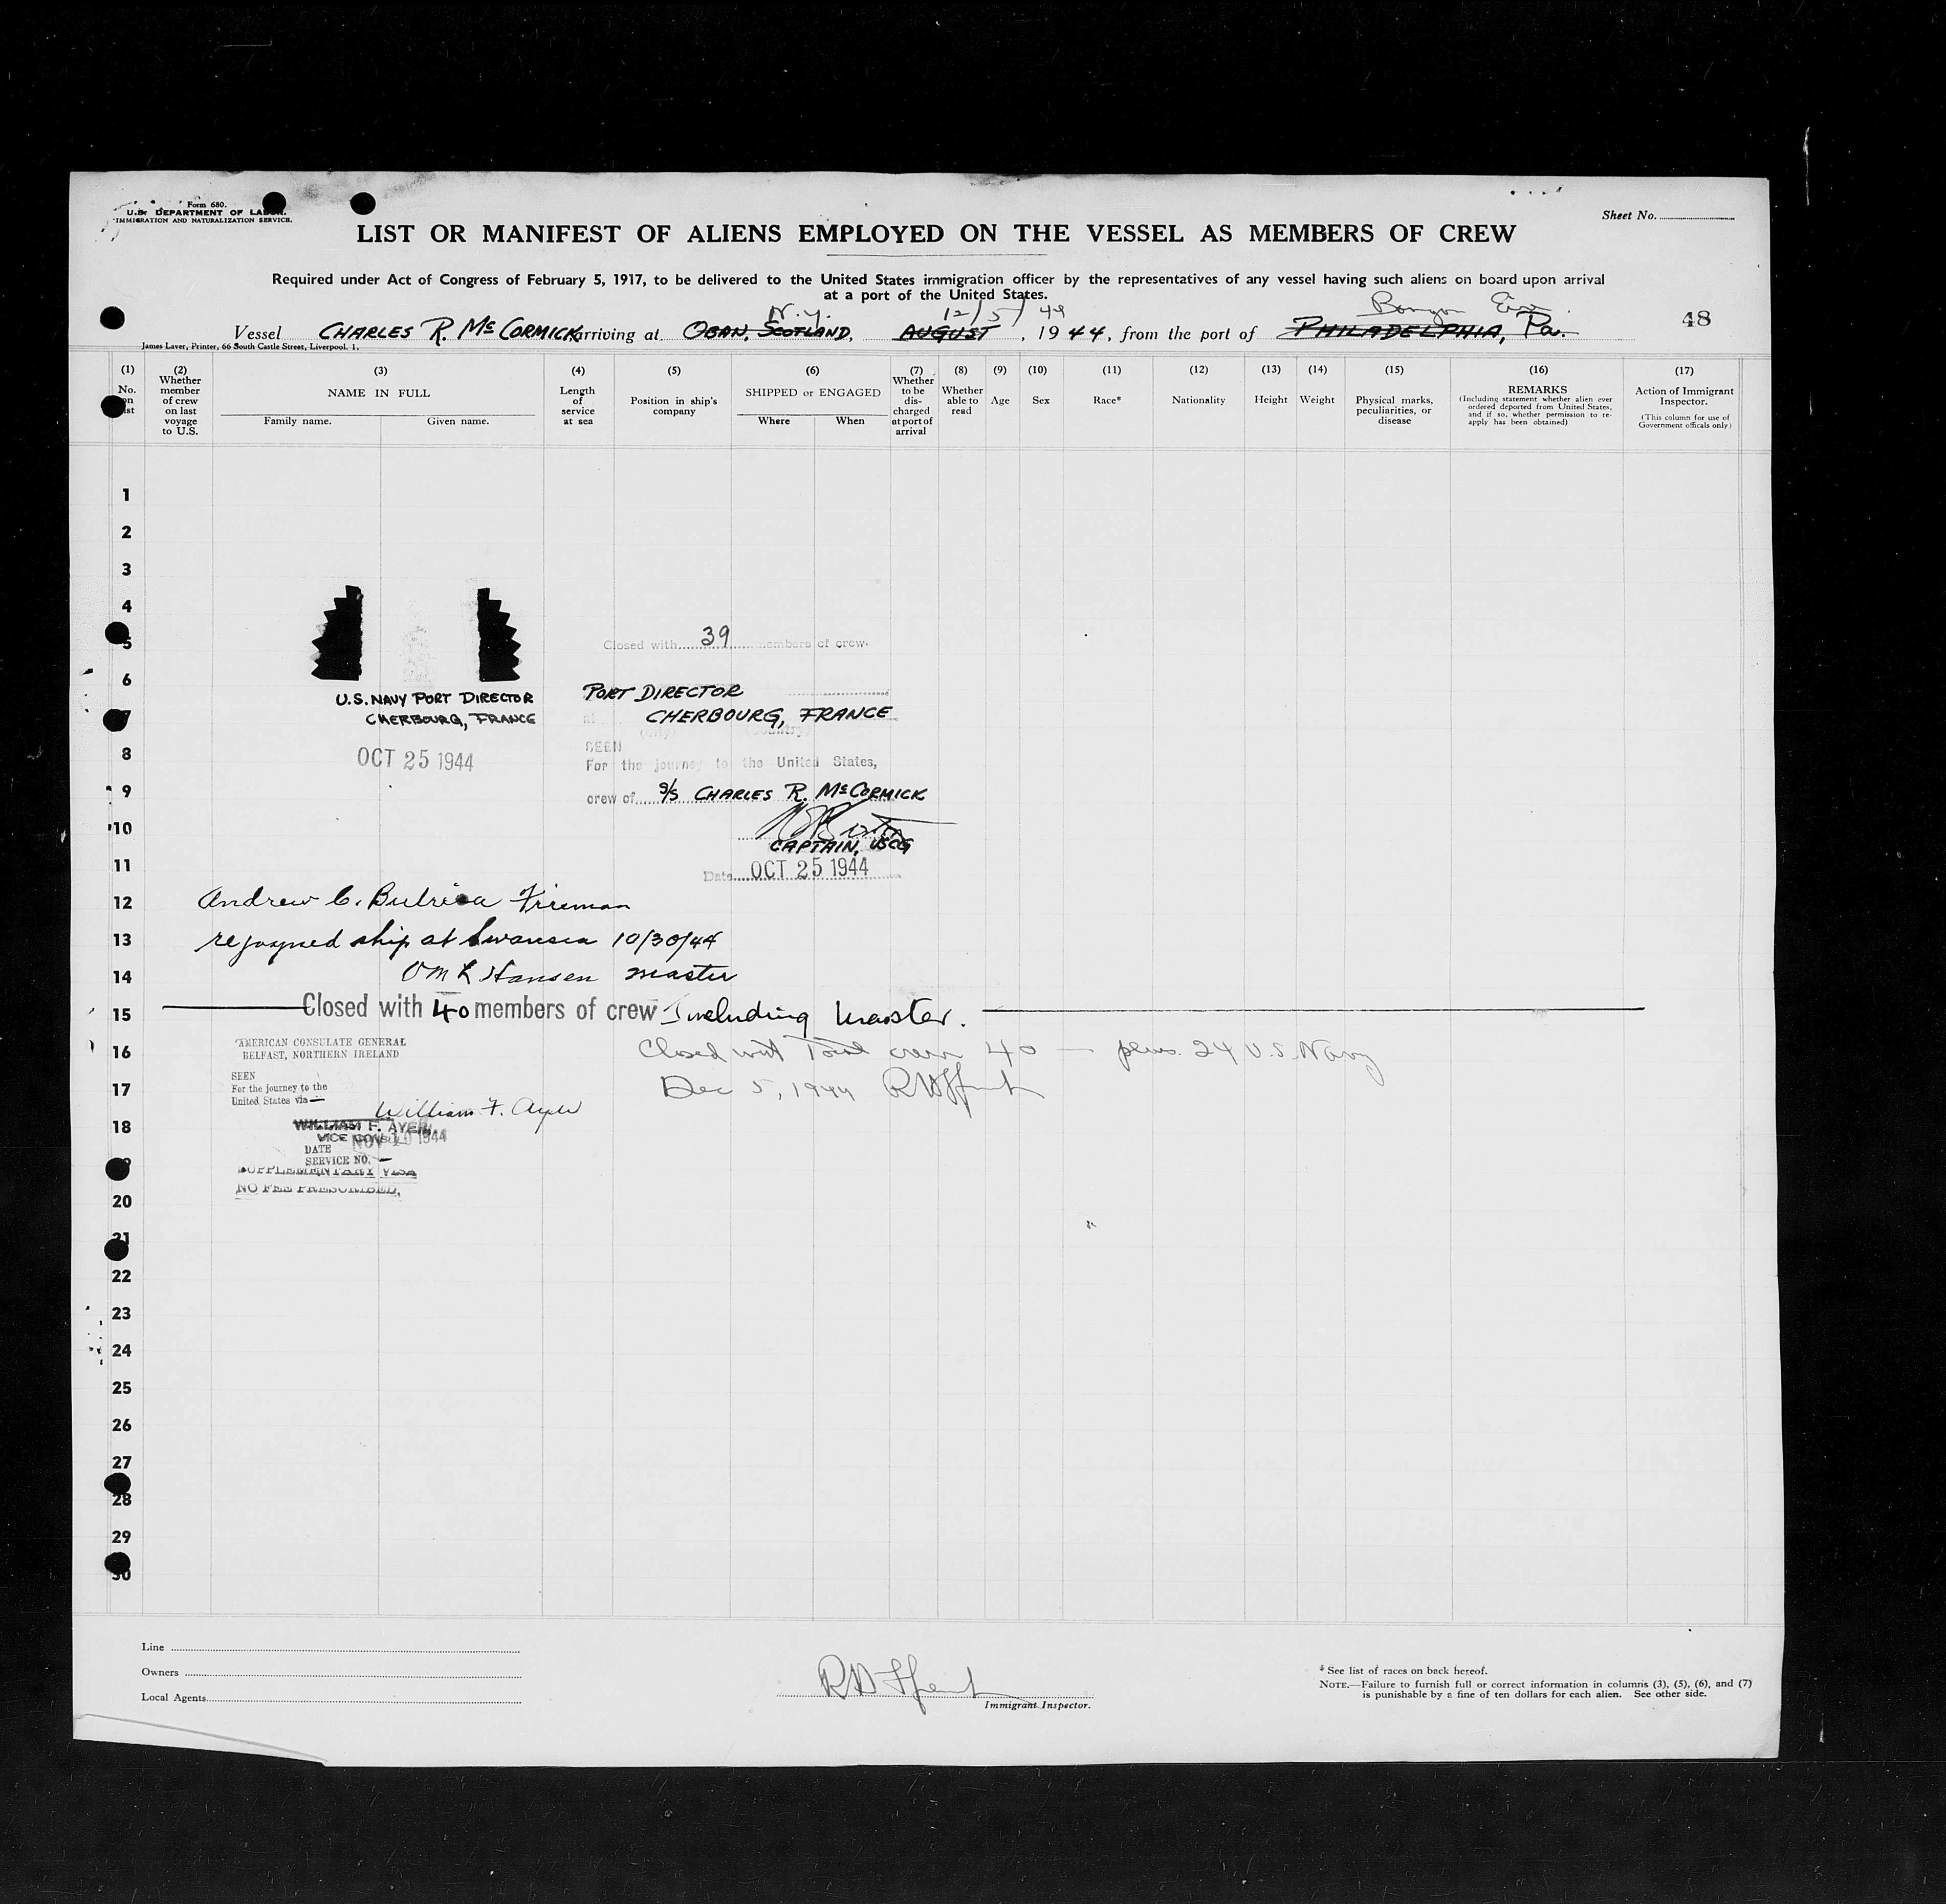 Form 680.
U.S. DEPARTMENT OF LABOR.
IMMIGRATION AND NATURALIZATION SERVICE.
Sheet No.
LIST OR MANIFEST OF ALIENS EMPLOYED ON THE VESSEL AS MEMBERS OF CREW
Required under Act of Congress of February 5, 1917, to be delivered to the United States immigration officer by the representatives of any vessel having such aliens on board upon arrival
at a port of the United States.
N.Y. 12/5/44
Vessel CHARLES R. McCORMICK arriving at OBAN, SCOTLAND, AUGUST, 1944, from the port of PHILADELPHIA, Pa.
48
James Laver, Printer, 66 South Castle Street, Liverpool. 1.
(1) No. on list
(2) Whether member of crew on last voyage to U.S.
(3) NAME IN FULL
Family name. Given name.
(4) Length of service at sea
(5) Position in ship's company
(6) SHIPPED or ENGAGED
Where When
(7) Whether to be discharged at port of arrival
(8) Whether able to read
(9) Age
(10) Sex
(11) Race*
(12) Nationality
(13) Height
(14) Weight
(15) Physical marks, peculiarities, or disease
(16) REMARKS
(Including statement whether alien ever ordered deported from United States, and if so, whether permission to re-apply has been obtained)
(17) Action of Immigrant Inspector.
(This column for use of Government officals only)
1
2
3
4
5
Closed with 39 members of crew.
6
U.S. NAVY PORT DIRECTOR
CHERBOURG, FRANCE
OCT 25 1944
PORT DIRECTOR
at CHERBOURG, FRANCE
(City) (Country)
7
8
SEEN
For the journey to the United States,
9
crew of S/S CHARLES R. McCORMICK
10
CAPTAIN, USCG
11
Date OCT 25 1944
12
Andrew C. Fireman
13
rejoyned ship at Swansea 10/30/44
14
Hansen master
15
Closed with 40 members of crew Including Master.
16
Closed with Total crew 40 — plus 24 U.S. Navy
17
Dec 5, 1944
AMERICAN CONSULATE GENERAL
BELFAST, NORTHERN IRELAND
SEEN
For the journey to the
United States via —
William F. Ayer
18
WILLIAM F. AYER,
VICE CONSUL
DATE NOV 1944
SERVICE NO. —
19
SUPPLEMENTARY VISA
NO FEE PRESCRIBED.
20
21
22
23
24
25
26
27
28
29
30
Line
Owners
Local Agents
Immigrant Inspector.
* See list of races on back hereof.
NOTE.—Failure to furnish full or correct information in columns (3), (5), (6), and (7)
is punishable by a fine of ten dollars for each alien. See other side.